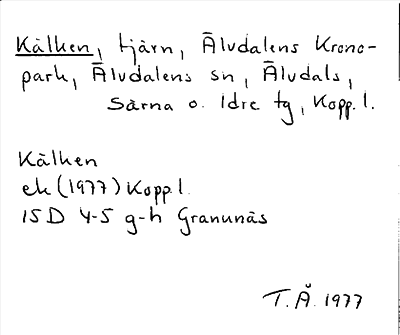 Kälken, tjärn, Älvdalens Krono-
park, Älvdalens sn, Älvdals,
Särna o. Idre tg, Kopp. l.
Kälken
ek (1977) Kopp. l.
15D 4-5 g-h Granunäs
T. Å. 1977